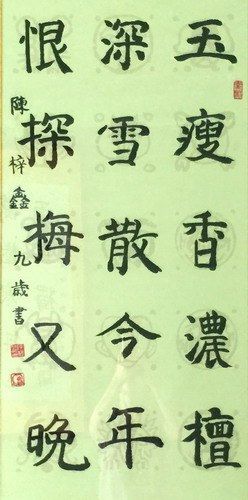 玉瘦香濃檀
深雪散今年
恨探梅又晚
陳梓鑫九歲書